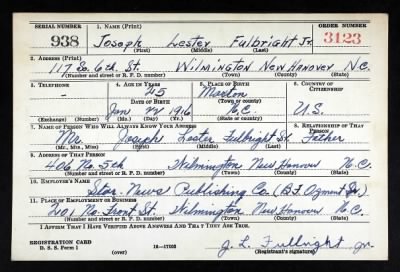 SERIAL NUMBER 1. NAME (Print) ORDER NUMBER
938 Joseph Lester Fulbright Jr. 3123
(First) (Middle) (Last)
2. ADDRESS (Print)
117 So. 6th. St. Wilmington New Hanover N.C.
(Number and street or R. F. D. number) (Town) (County) (State)
3. TELEPHONE 4. AGE IN YEARS 5. PLACE OF BIRTH 6. COUNTRY OF CITIZENSHIP
- 25 Marion
DATE OF BIRTH (Town or county)
Jan 1916 N.C. U.S.
(Exchange) (Number) (Mo.) (Day) (Yr.) (State or country)
7. NAME OF PERSON WHO WILL ALWAYS KNOW YOUR ADDRESS 8. RELATIONSHIP OF THAT PERSON
Mr. Joseph Lester Fulbright Sr. Father
(Mr., Mrs., Miss) (First) (Middle) (Last)
9. ADDRESS OF THAT PERSON
406 No. 5th Wilmington New Hanover N.C.
(Number and street or R. F. D. number) (Town) (County) (State)
10. EMPLOYER'S NAME
Star-News Publishing Co. (B.F. Ozment)
11. PLACE OF EMPLOYMENT OR BUSINESS
201 No. Front St. Wilmington New Hanover N.C.
(Number and street or R. F. D. number) (Town) (County) (State)
I AFFIRM THAT I HAVE VERIFIED ABOVE ANSWERS AND THAT THEY ARE TRUE.
REGISTRATION CARD
D. S. S. Form 1 (over) 16-17105 J. L. Fulbright Jr.
(Registrant's signature)